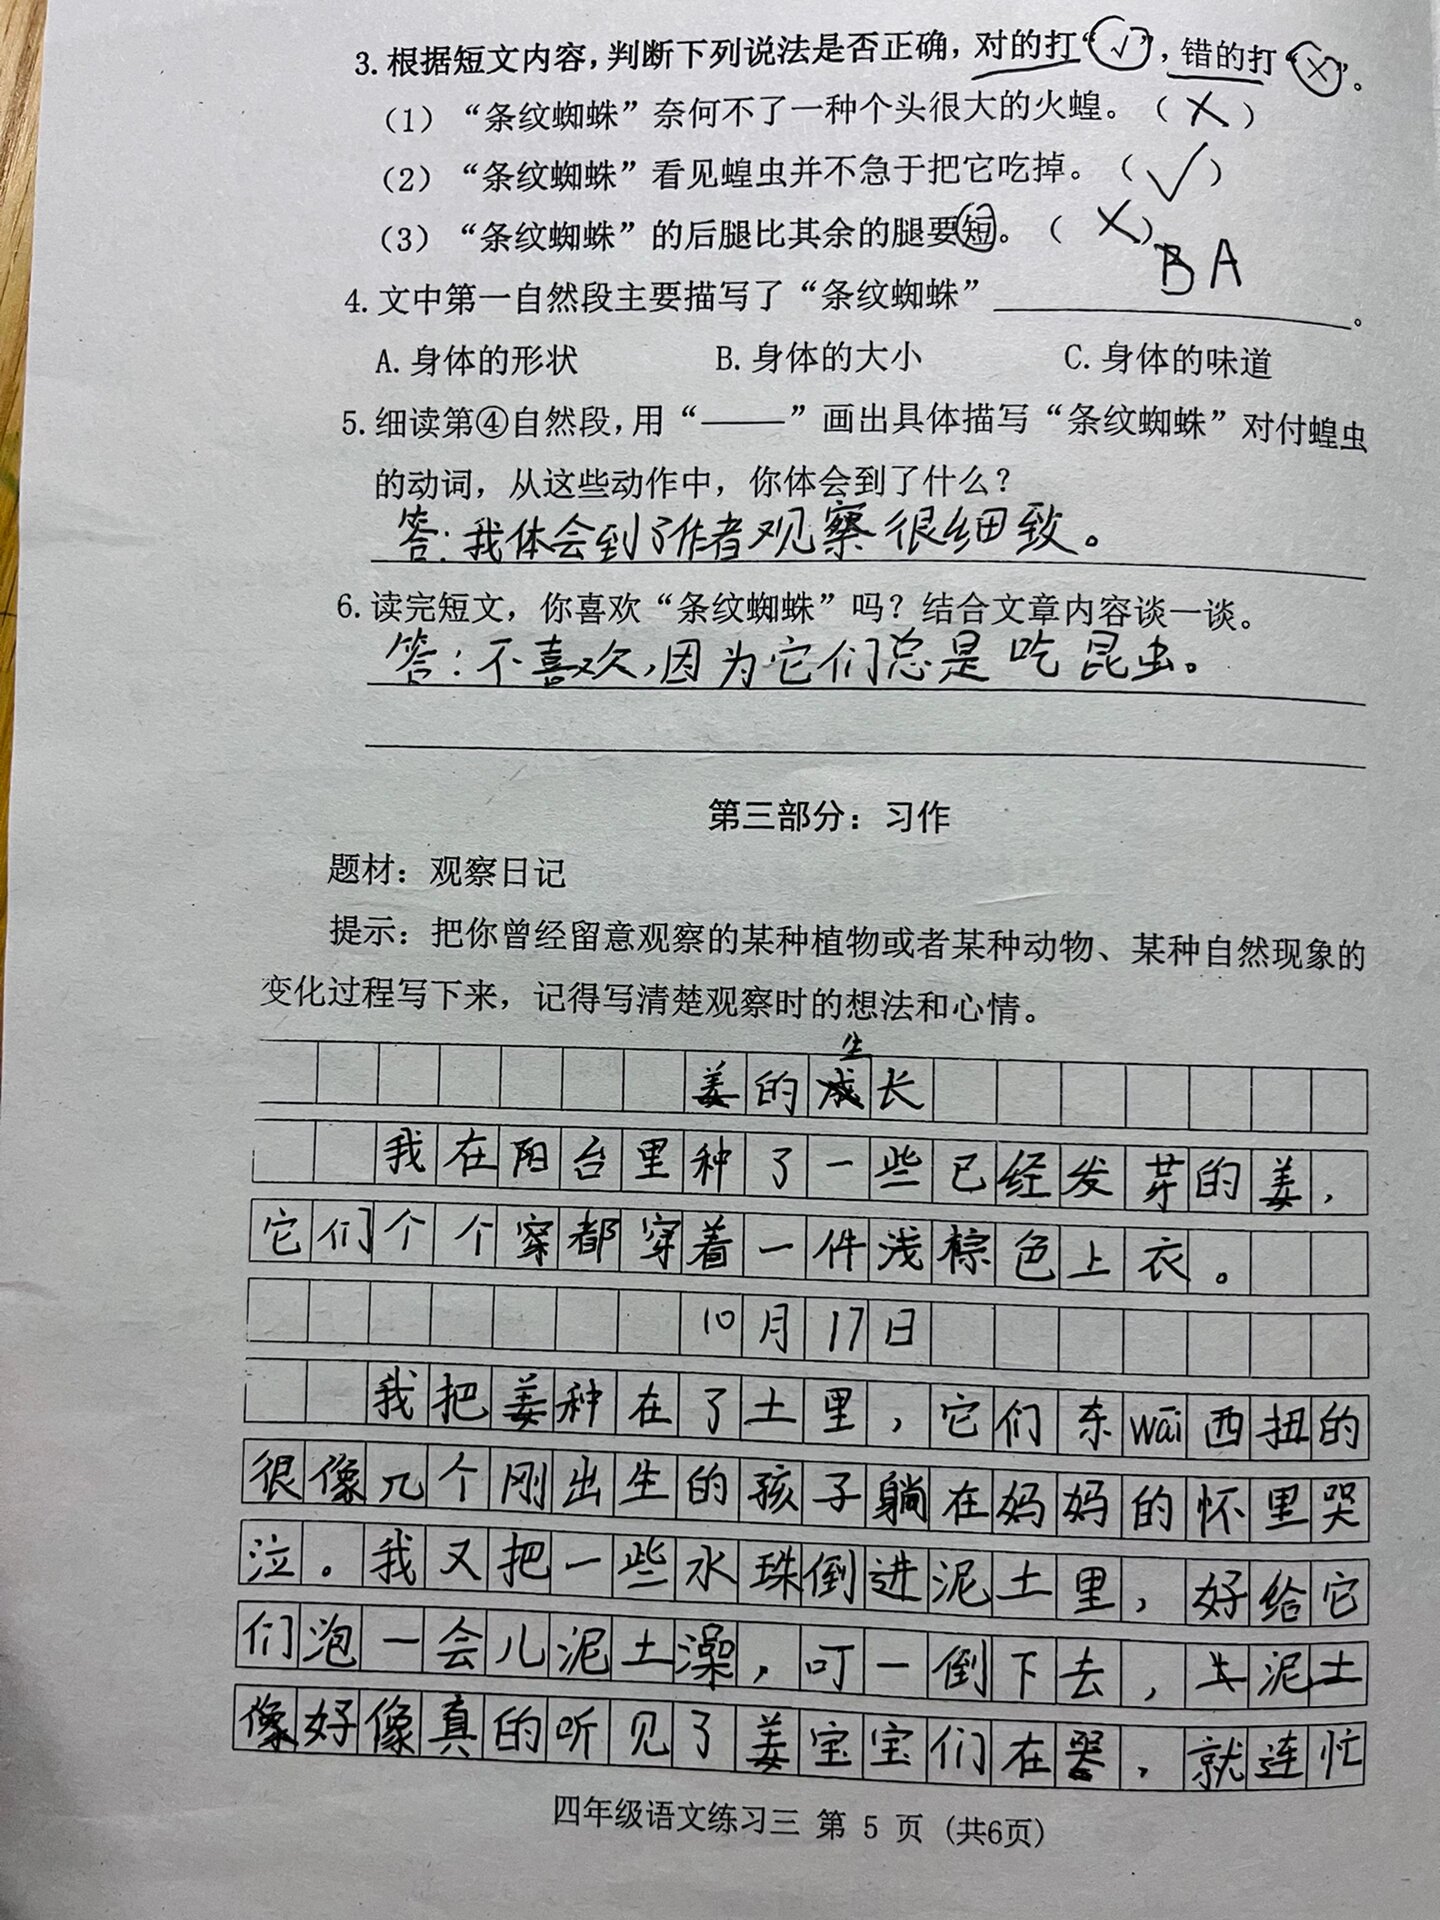 3.根据短文内容,判断下列说法是否正确,对的打“√”,错的打“×”。
(1)“条纹蜘蛛”奈何不了一种个头很大的火蝗。(×)
(2)“条纹蜘蛛”看见蝗虫并不急于把它吃掉。(√)
(3)“条纹蜘蛛”的后腿比其余的腿要短。(×)
4.文中第一自然段主要描写了“条纹蜘蛛”BA。
A.身体的形状 B.身体的大小 C.身体的味道
5.细读第④自然段,用“——”画出具体描写“条纹蜘蛛”对付蝗虫
的动词,从这些动作中,你体会到了什么?
答:我体会到了作者观察很细致。
6.读完短文,你喜欢“条纹蜘蛛”吗?结合文章内容谈一谈。
答:不喜欢,因为它们总是吃昆虫。
第三部分:习作
题材:观察日记
提示:把你曾经留意观察的某种植物或者某种动物、某种自然现象的
变化过程写下来,记得写清楚观察时的想法和心情。
生
姜的成长
我在阳台里种了一些已经发芽的姜,
它们个个穿都穿着一件浅棕色上衣。
10月17日
我把姜种在了土里,它们东wāi西扭的
很像几个刚出生的孩子躺在妈妈的怀里哭
泣。我又把一些水珠倒进泥土里,好给它
们泡一会儿泥土澡,叮一倒下去,土泥土
像好像真的听见了姜宝宝们在哭,就连忙
四年级语文练习三 第 5 页 (共6页)